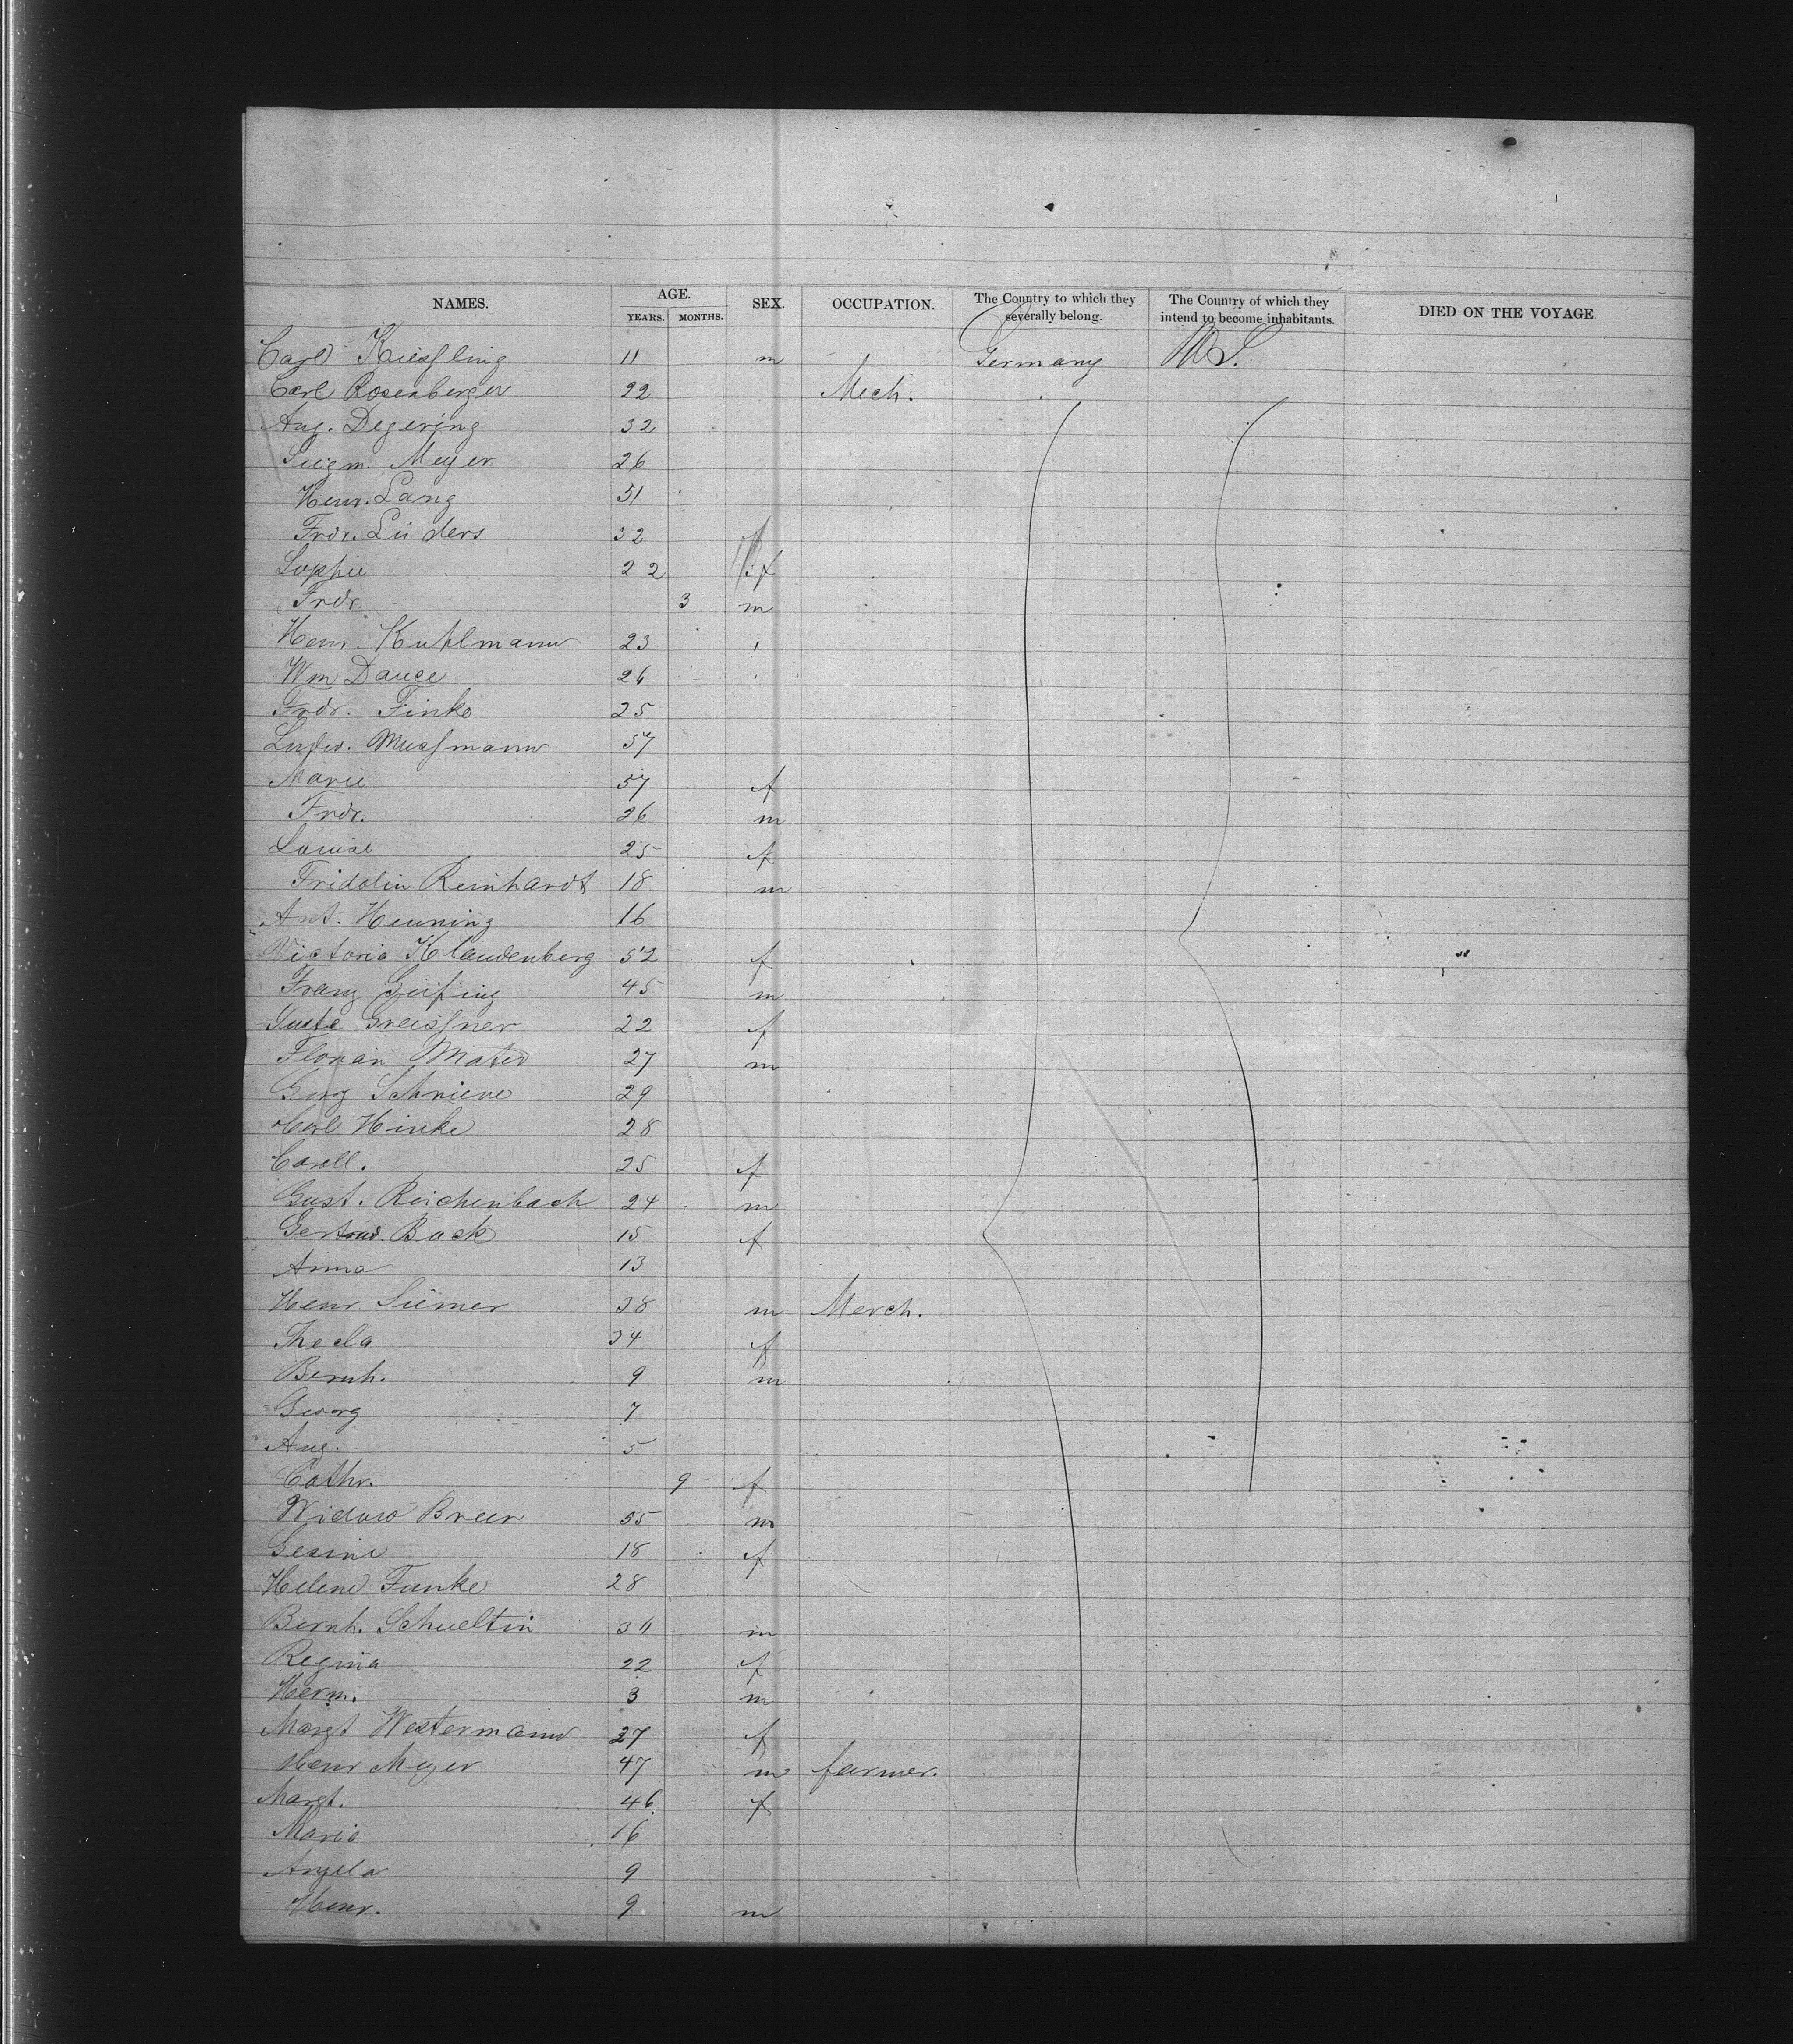 NAMES. AGE. SEX. OCCUPATION. The Country to which they severally belong. The Country of which they intend to become inhabitants. DIED ON THE VOYAGE
YEARS. MONTHS.
Carl Kiessling 11 m Germany U.S.
Carl Rosenberger 22 Mech.
Aug. Degering 32
Siegm. Meyer 26
Henr. Lang 31
Frdr. Lüders 32
Sophie 22 f
Frdr. 3 m
Henr. Kuhlmann 23
Wm Dauce 26
Frdr. Finke 25
Ludw. Mussmann 57
Marie 57 f
Frdr. 26 m
Louise 25 f
Fridolin Reinhardt 18 m
Ant. Henning 16
Victoria Klaudenberg 52 f
Franz 45 m
Greissner 22 f
Florian 27 m
Georg Schriever 29
Carl Hinke 28
Caroll. 25 f
Gust. Reichenbach 24 m
Gertrud. Back 15 f
Anna 13
Henr. Siemer 38 m Merch.
Thecla 34 f
Bernh. 9 m
Georg 7
Aug. 5
Cathr. 9 f
Widow Breer 55 m
Gesine 18 f
Helene Funke 28
Bernh. Schueltin 30 m
Regina 22 f
Herm. 3 m
Margt Westermann 27 f
Henr Meyer 47 m farmer.
Margt. 46 f
Maria 16
Angela 9
Henr. 9 m